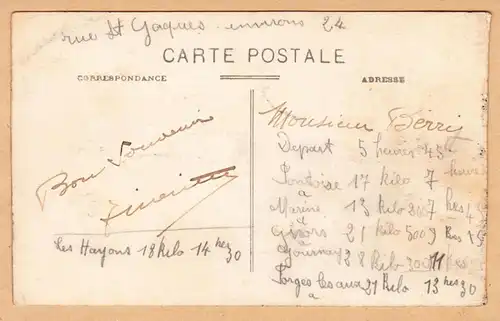 rue St Jaques environs 24
CARTE POSTALE
CORRESPONDANCE
ADRESSE
Monsieur Berrig
Bon Souvenir
Depart 5 heures 45
Pontoise 17 kilo 7 heures
a
Marine 13 kilo 7 hes
a
Gisors 21 kilo 500 9 hes 15
a
Gournay 28 kilo 300 11 hes
Forges les aux 21 kilo 13 hes 30
a
Les Hayons 18 kilo 14 hes 30